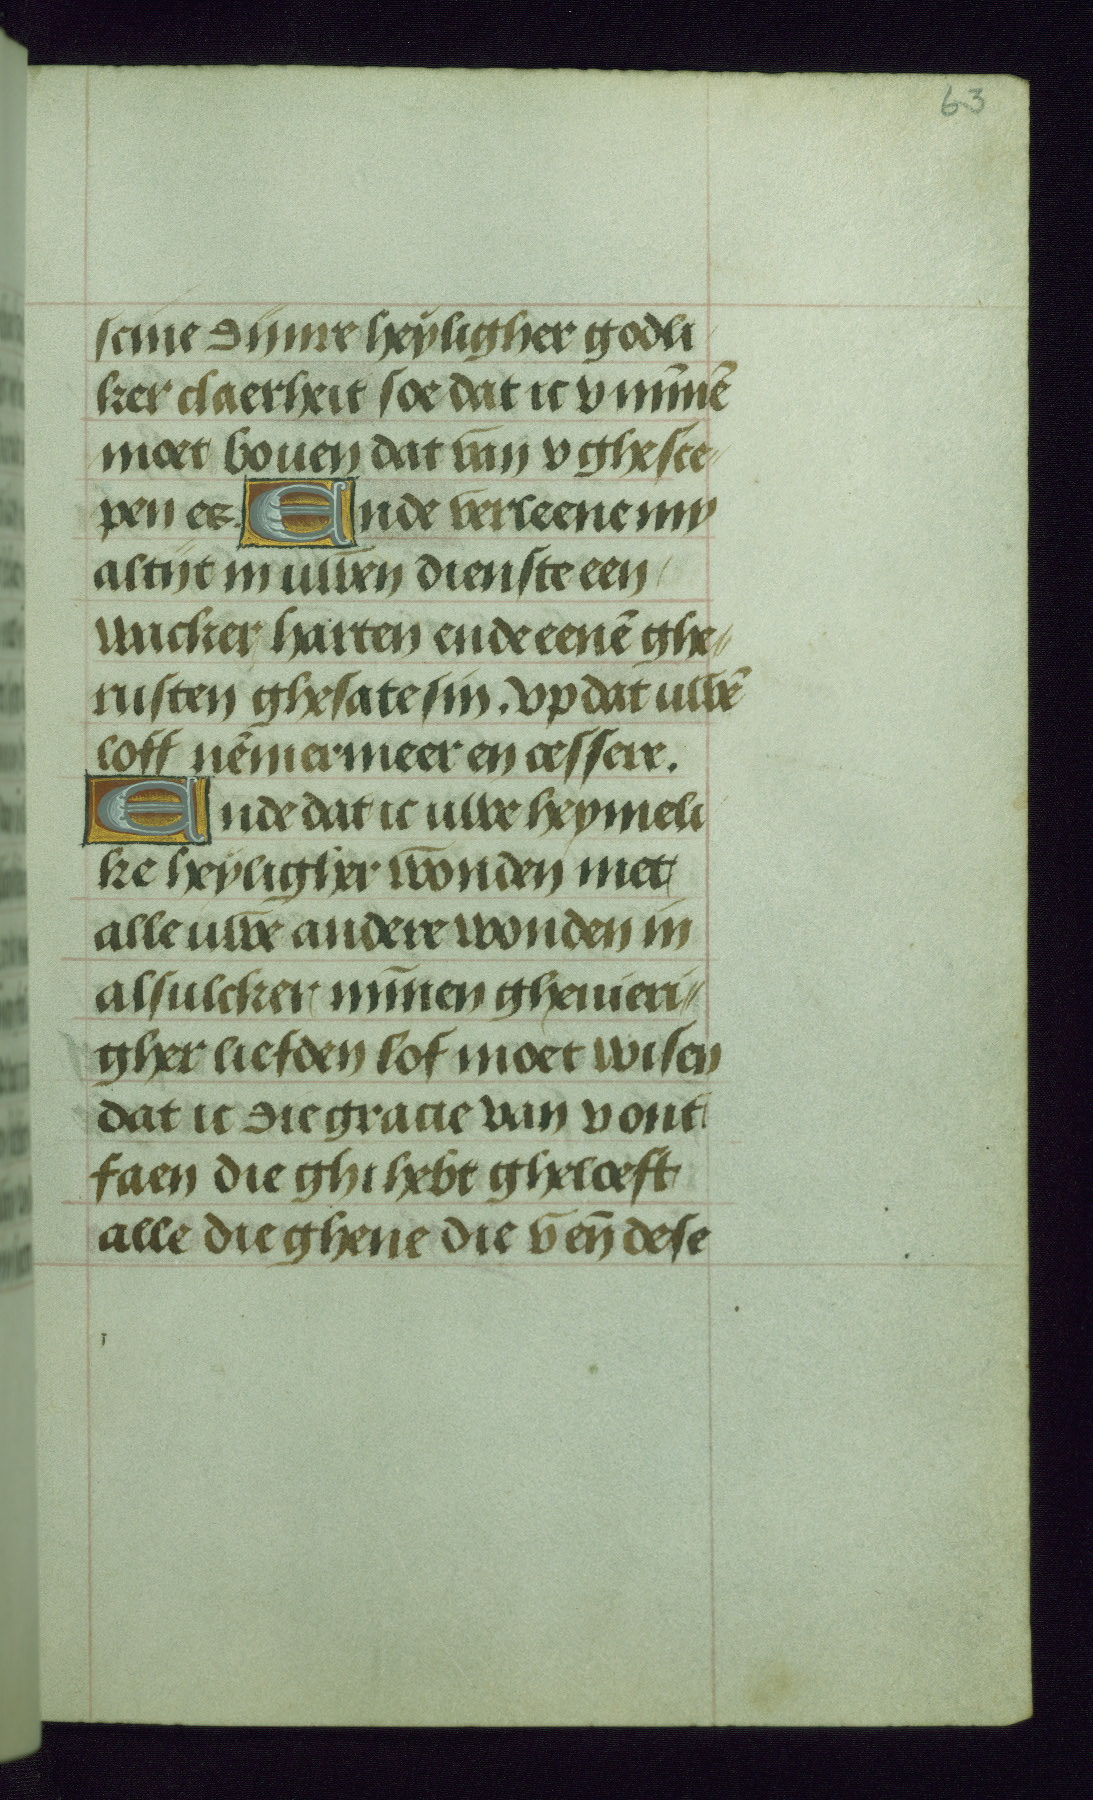 63
scine dijnre heyligher godli
ker claerheit soe dat ic v minnē
moet bouen dat van v ghesce
pen es. Ende verleene my
altijt in uwen dienste een
wacker harten ende eenē ghe
rusten ghesate sin. Vp dat uwē
loff nēmermeer en cessere.
Ende dat ic uwe heymeli
ke heyligher wonden met
alle uwe andere wonden in
alsulcker minnen ghenieri
gher liefden lof moet wisen
dat ic die gracie van v ont
faen die ghi hebt gheloeft
alle die ghene die v en̄ dese